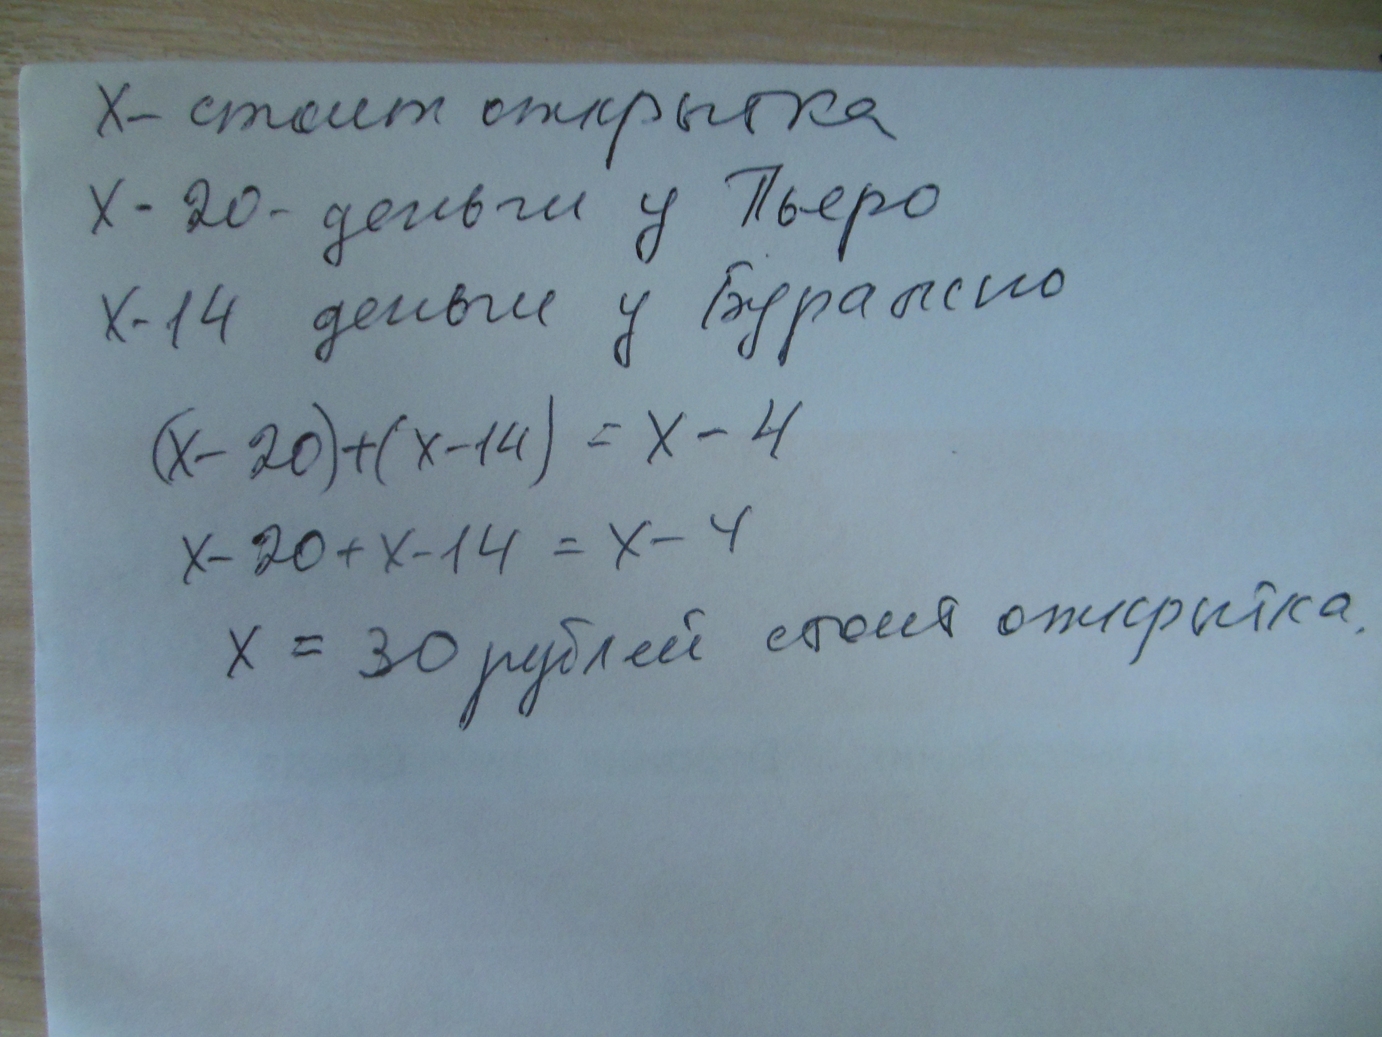 x - стоит открытка
x - 20 - деньги у Пьеро
x - 14 деньги у Буратино
(x - 20) + (x - 14) = x - 4
x - 20 + x - 14 = x - 4
x = 30 рублей стоит открытка.